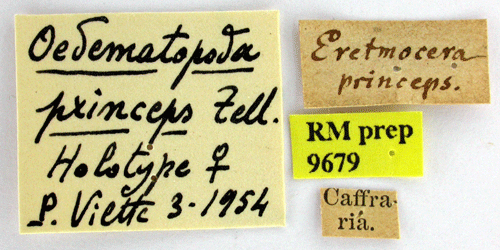 Oedematopoda
princeps Zell.
Holotype ♀
P. Viette 3-1954
Eretmocera
princeps.
RM prep
9679
Caffra-
ria.